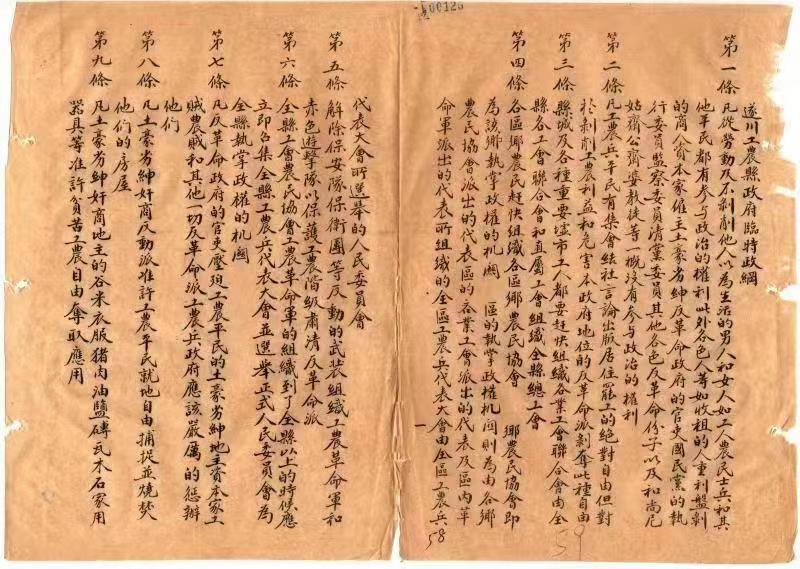 00126
遂川工農縣政府臨時政綱
第一條 凡從勞動及不剝削他人以為生活的男人和女人如工人農民士兵和其
他平民都有参与政治的權利此外各色人等如收租的人重利盤剝
的商人資本家僱主土豪劣紳反革命政府的官吏國民黨的執
行委員監察委員清黨委員其他各色反革命份子以及和尚尼
姑齋公齋婆教徒等一概沒有参与政治的權利
第二條 凡工農兵平民有集會結社言論出版居住罷工的絕對自由但對
於剝削工農利益和危害本政府地位的反革命派剝奪此種自由
第三條 縣城及各種重要墟市工人都要赶快組織各業工會聯合會由全
縣各工會聯合會和直屬工會組織全縣總工會
第四條 各區鄉農民赶快組織各區鄉農民協會 鄉農民協會即
為該鄉執掌政權的机関 區的執掌政權机関則為由各鄉
農民協會派出的代表區的各業工會派出的代表及區內革
命軍派出的代表所組織的全區工農兵代表大會由全區工農兵
59
58
代表大會所選举的人民委員會
第五條 解除保安隊保衛團等反動的武装組織工農革命軍和
赤色遊擊隊以保護工農階級肅清反革命派
第六條 全縣工會農民協會工農革命軍的組織到了全縣以上的時候應
立即召集全縣工農兵代表大會並選举正式人民委員會為
全縣執掌政權的机関
第七條 凡反革命政府的官吏壓迫工農平民的土豪劣紳地主資本家工
賊農賊和其他一切反革命派工農兵政府應該嚴厲的惩辦
他們
第八條 凡土豪劣紳奸商反動派准許工農平民就地自由捕捉並燒焚
他們的房屋
第九條 凡土豪劣紳奸商地主的谷米衣服猪肉油鹽磚瓦木石家用
器具等准許貧苦工農自由奪取應用